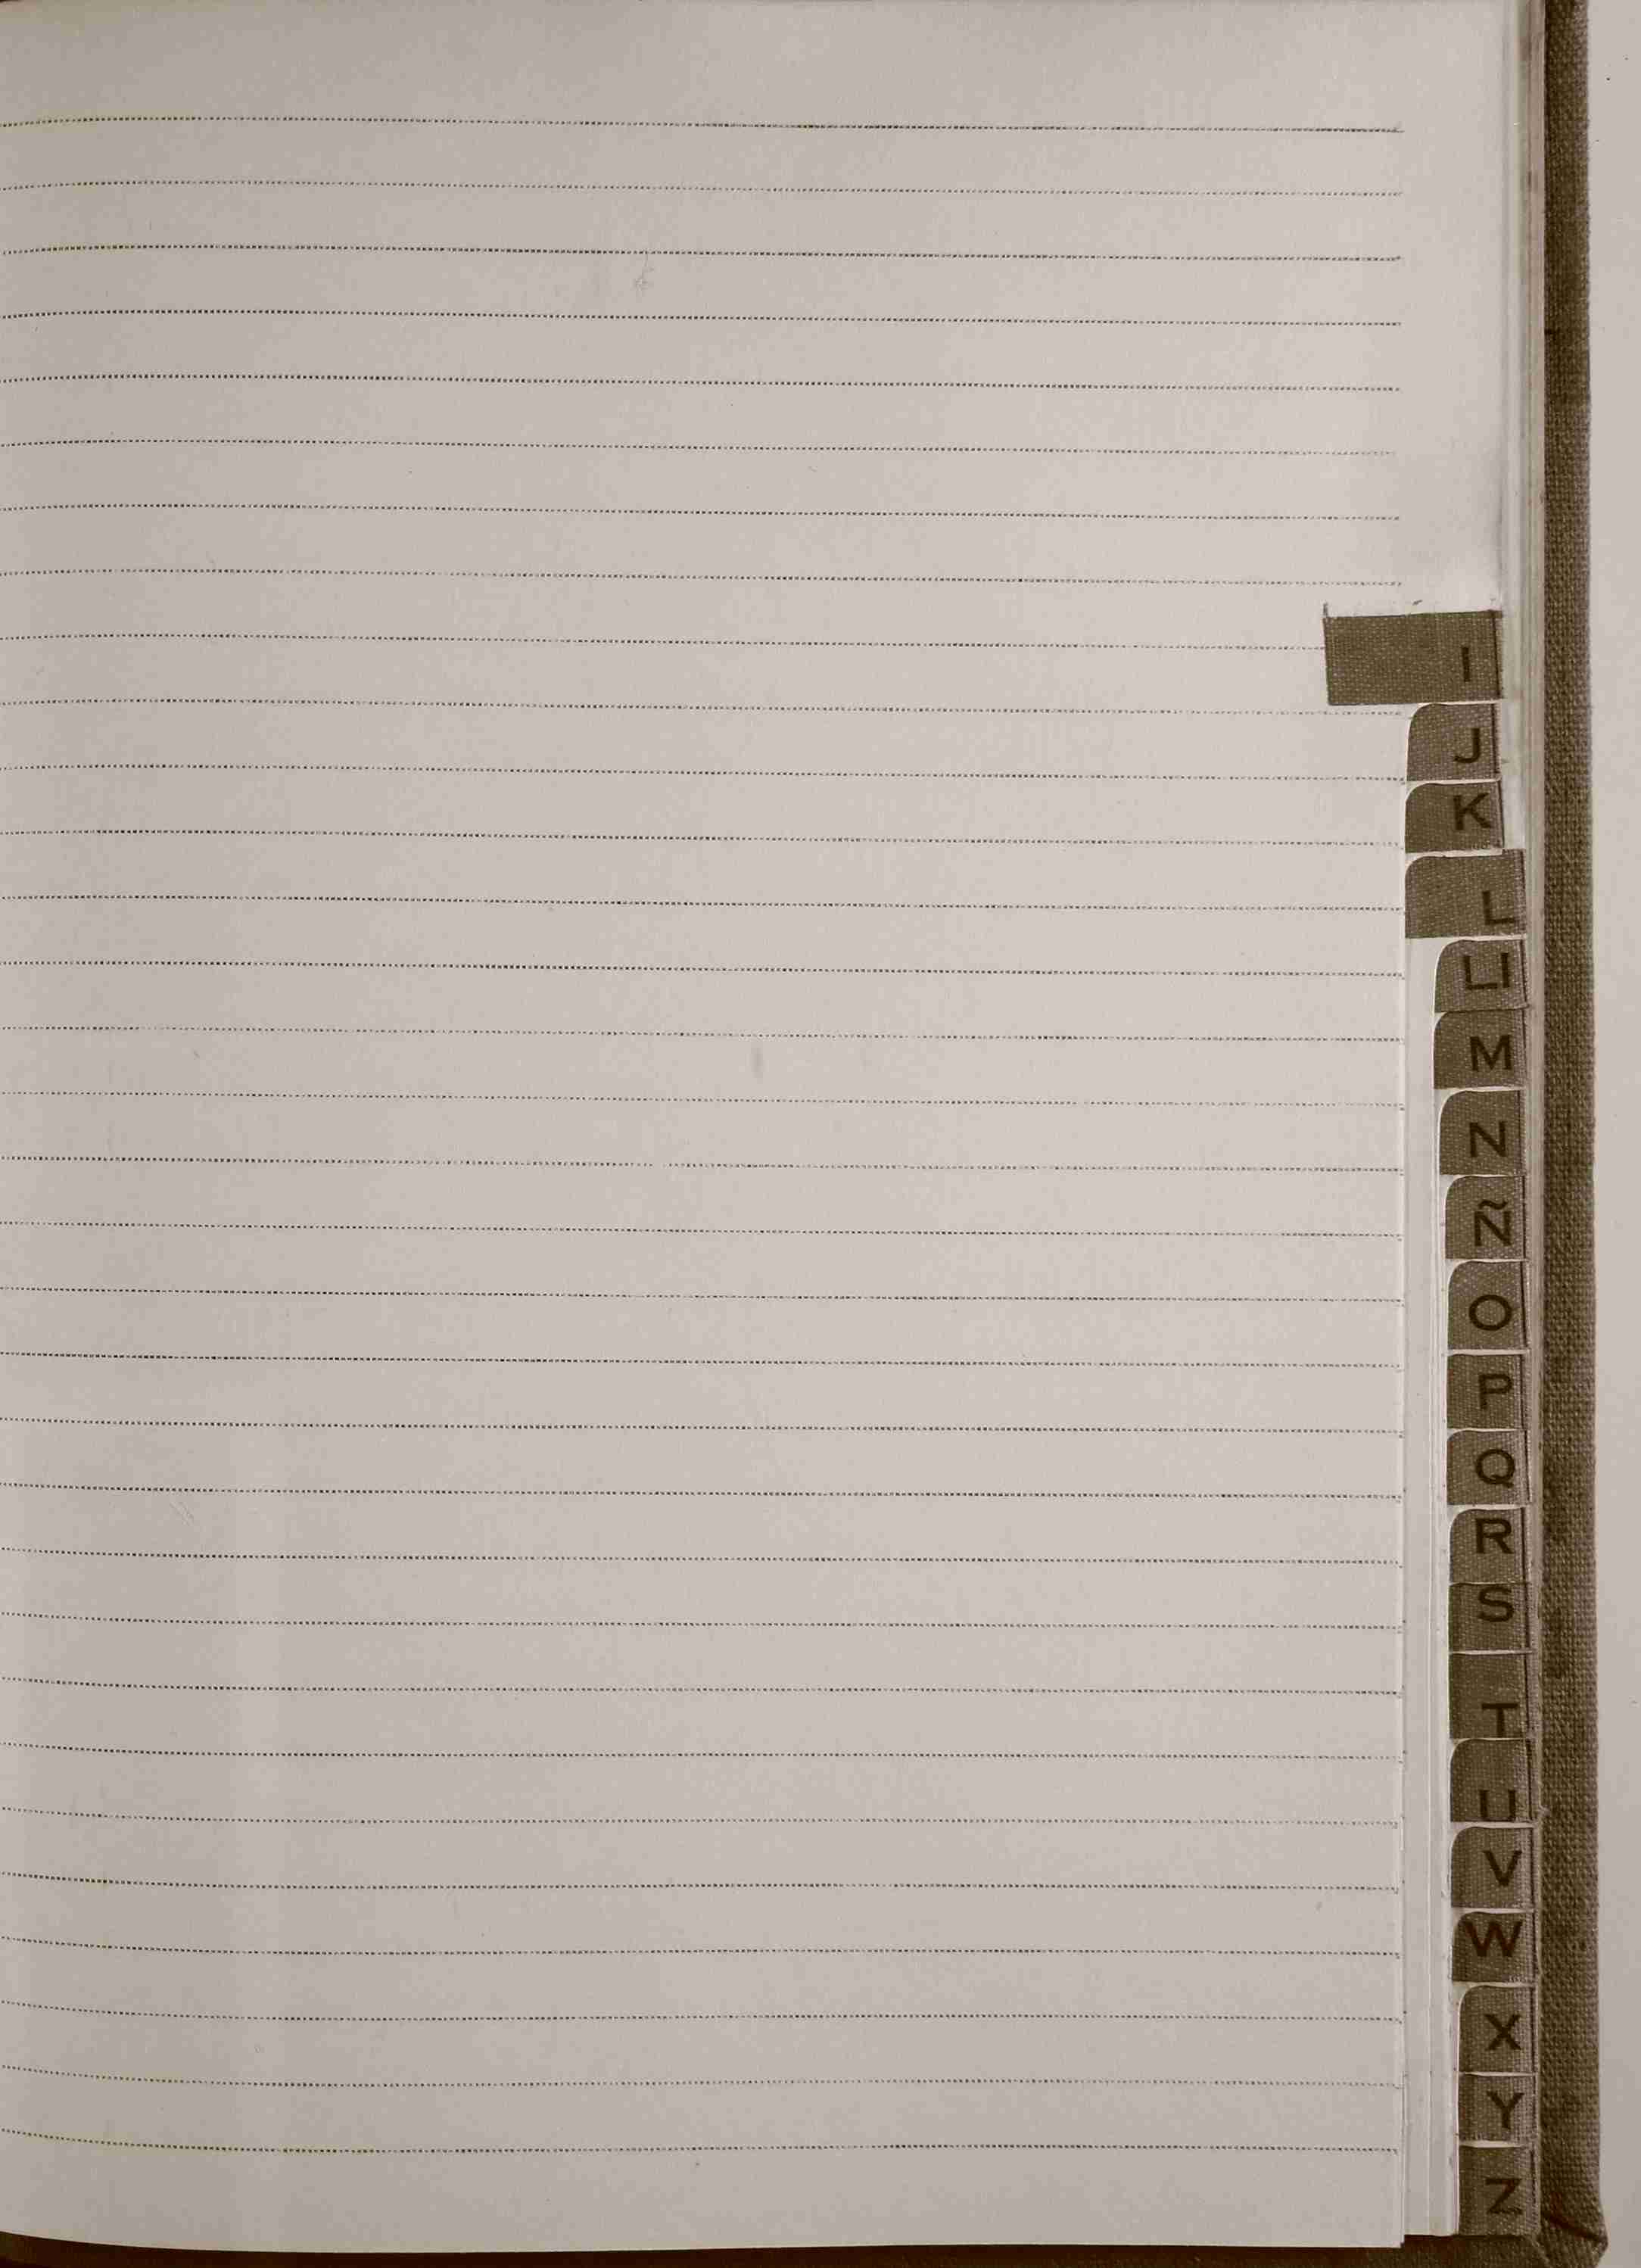 I
J
K
L
Ll
M
N
Ñ
O
P
Q
R
S
T
U
V
W
X
Y
Z